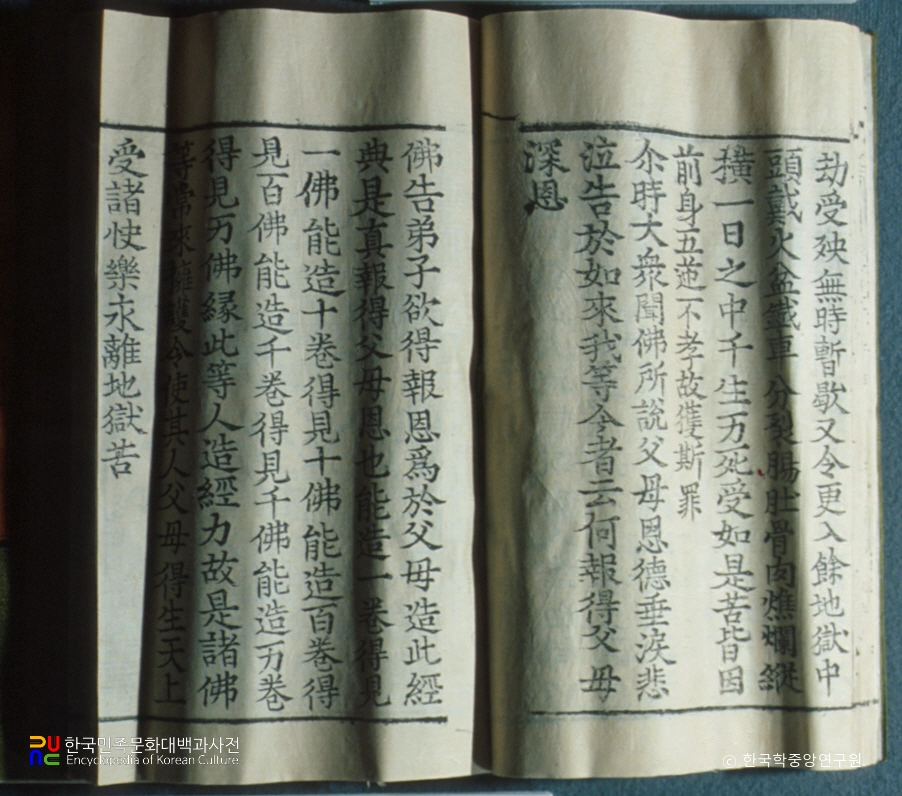 劫受殃無時暫歇又令更入餘地獄中
頭戴火盆鐵車分裂腸肚骨肉燋爛縱
撗一日之中千生万死受如是苦皆因
前身五逆不孝故獲斯罪
尒時大衆聞佛所說父母恩德垂淚悲
泣告於如來我等今者云何報得父母
深恩
佛告弟子欲得報恩爲於父母造此經
典是真報得父母恩也能造一卷得見
一佛能造十卷得見十佛能造百卷得
見百佛能造千卷得見千佛能造万卷
得見万佛緣此等人造經力故是諸佛
等常來擁護令使其人父母得生天上
受諸快樂永離地獄苦
한국민족문화대백과사전
Encyclopedia of Korean Culture
© 한국학중앙연구원